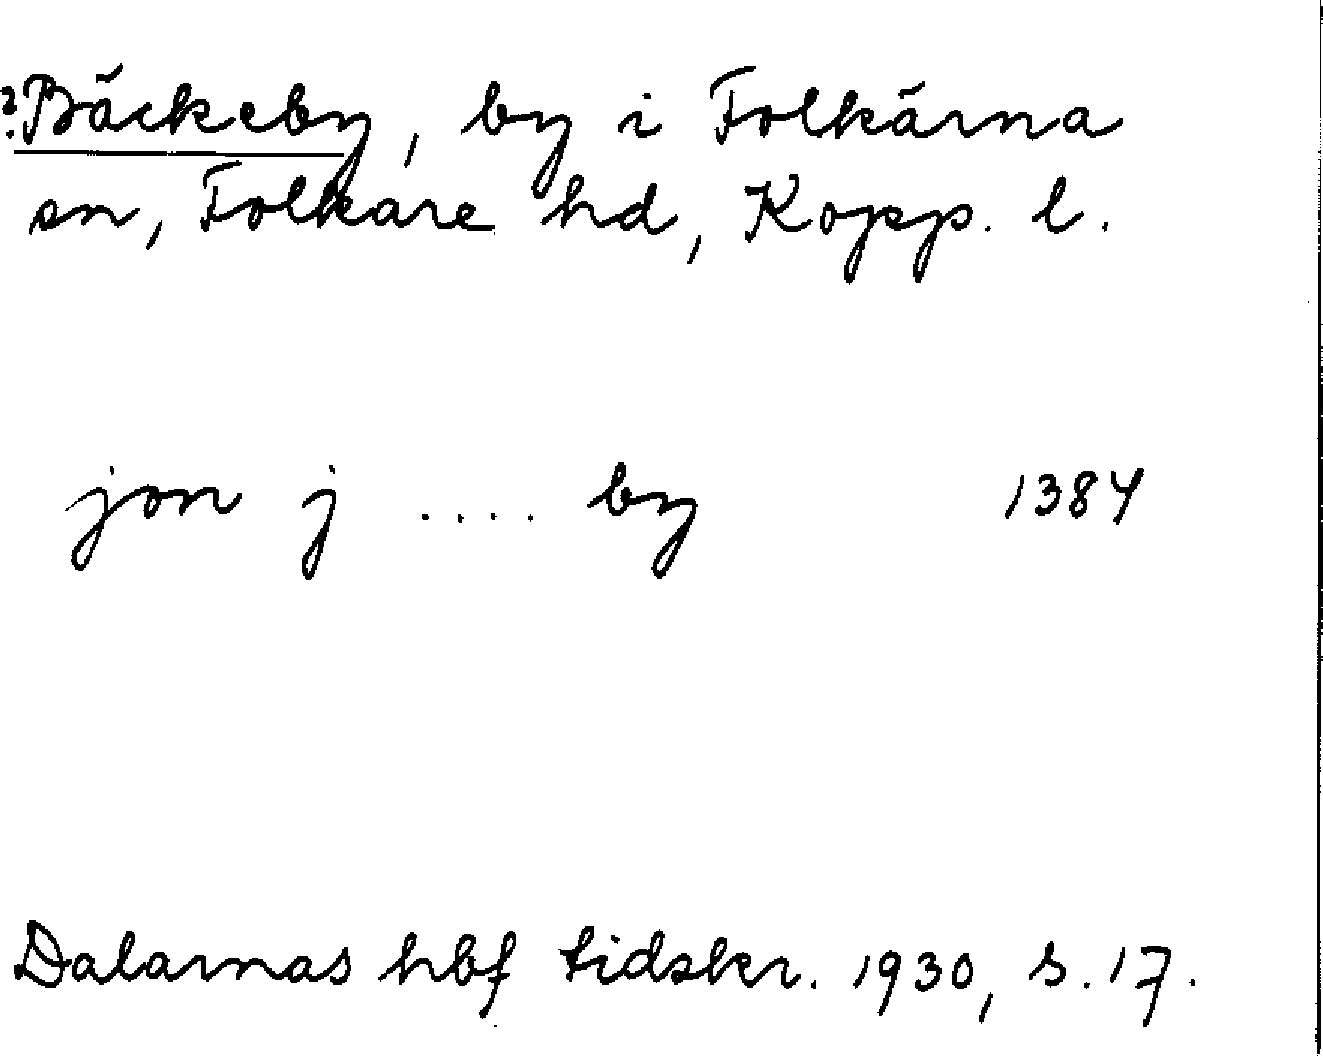 ?Bäckeby, by i Folkärna
sn, Folkare hd, Kopp. l.
jon j .... by 1384
Dalarnas hbf tidskr. 1930, s. 17.